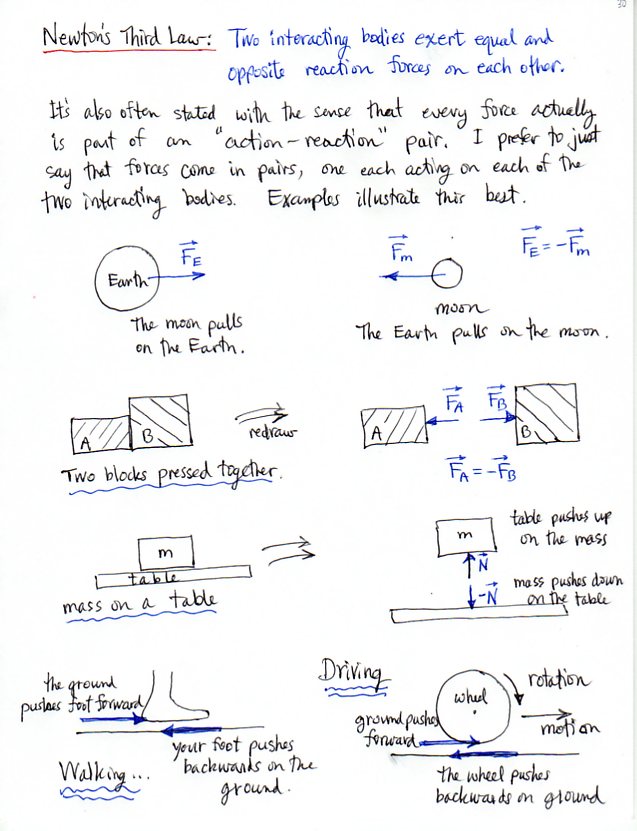 30
Newton's Third Law: Two interacting bodies exert equal and
opposite reaction forces on each other.
It's also often stated with the sense that every force actually
is part of an "action-reaction" pair. I prefer to just
say that forces come in pairs, one each acting on each of the
two interacting bodies. Examples illustrate this best.
Earth
F⃗E
The moon pulls
on the Earth.
F⃗m
moon
The Earth pulls on the moon.
F⃗E = -F⃗m
A
B
Two blocks pressed together.
redraw
A
F⃗A
F⃗B
B
F⃗A = -F⃗B
m
table
mass on a table
m
table pushes up
on the mass
N⃗
-N⃗
mass pushes down
on the table
the ground
pushes foot forward
your foot pushes
backwards on the
ground.
Walking...
Driving
wheel
rotation
motion
ground pushes
forward
the wheel pushes
backwards on ground